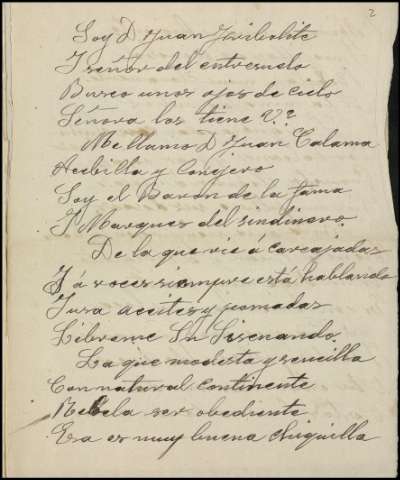 2
Soy D Juan
I señor del entresuelo
Busco unos ojos de cielo
Señora los tiene V.?
Me llamo D Juan Calama
Acibilla y Conejero
Soy el Baron de la fama
I Marques del sindinero.
De la que rie á carcajadas
I á voces siempre está hablando
I usa aceites y pomadas
Libreme Sn Sisenando.
La que modesta y sencilla
Con natural continente
Rebela ser obediente
Esa es muy buena chiquilla